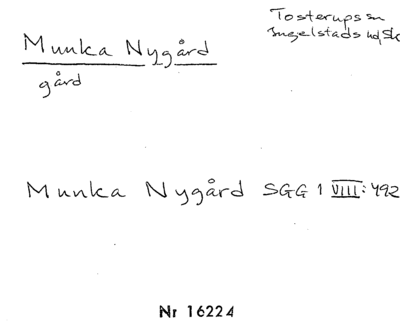 Munka Nygård
gård
Tosterups sn
Ingelstads hd, Sk
Munka Nygård SGG 1 VIII: 492
Nr 16224